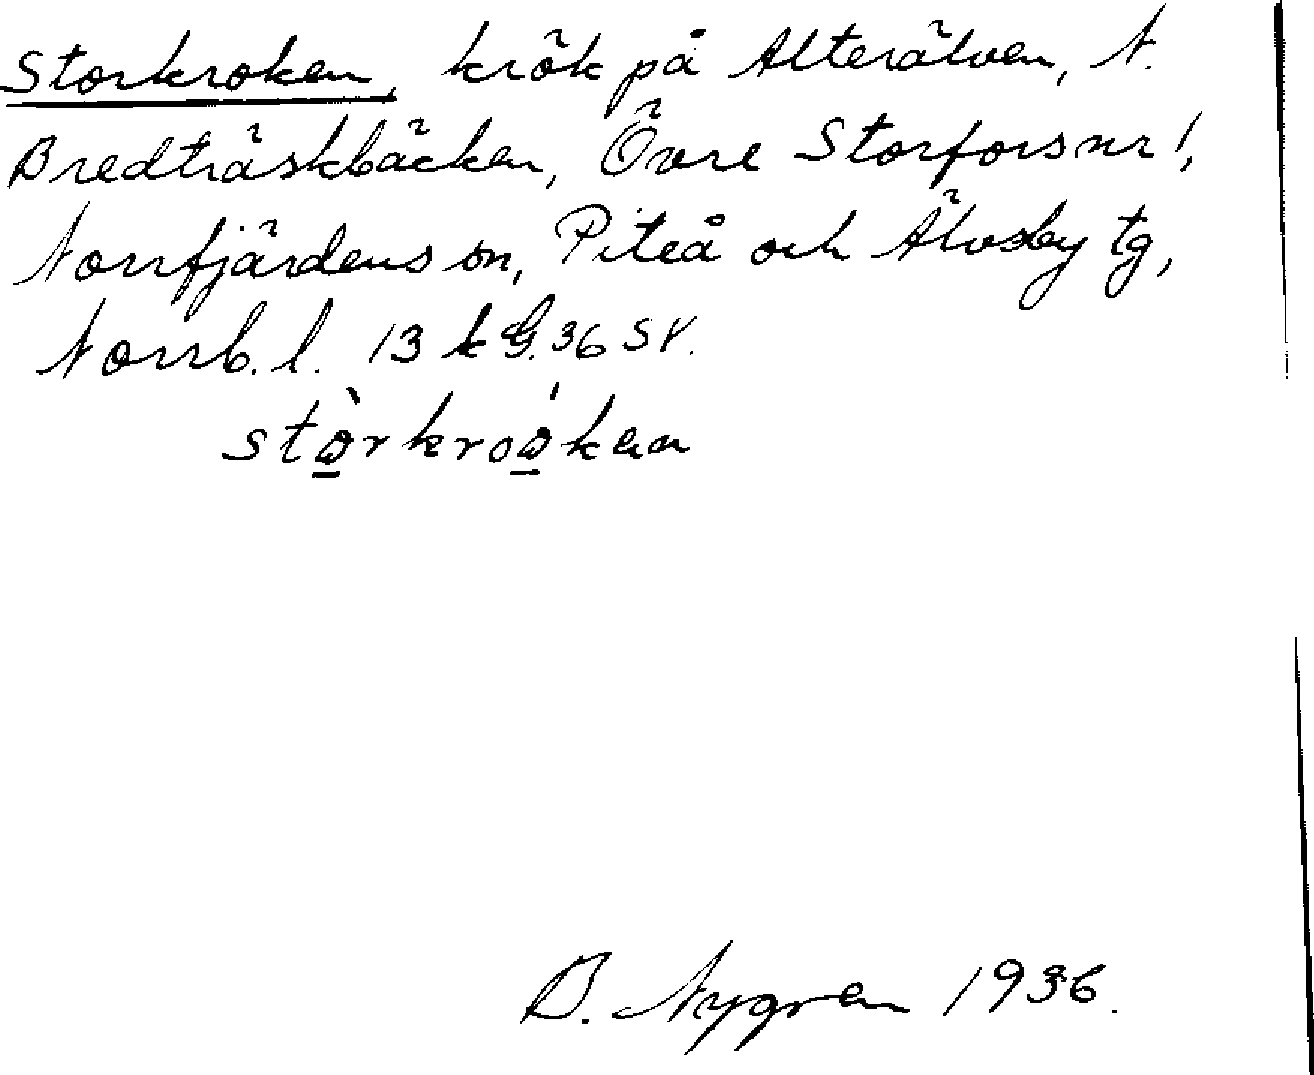 Storkroken, krök på Alterälven, N.
Bredträskbäcken, Övre Storfors nr 1,
Norrfjärdens sn, Piteå och Älvsby tg,
Norrb. l. 13 k G. 36 SV.
stòrkroóken
B. Nygren 1936.